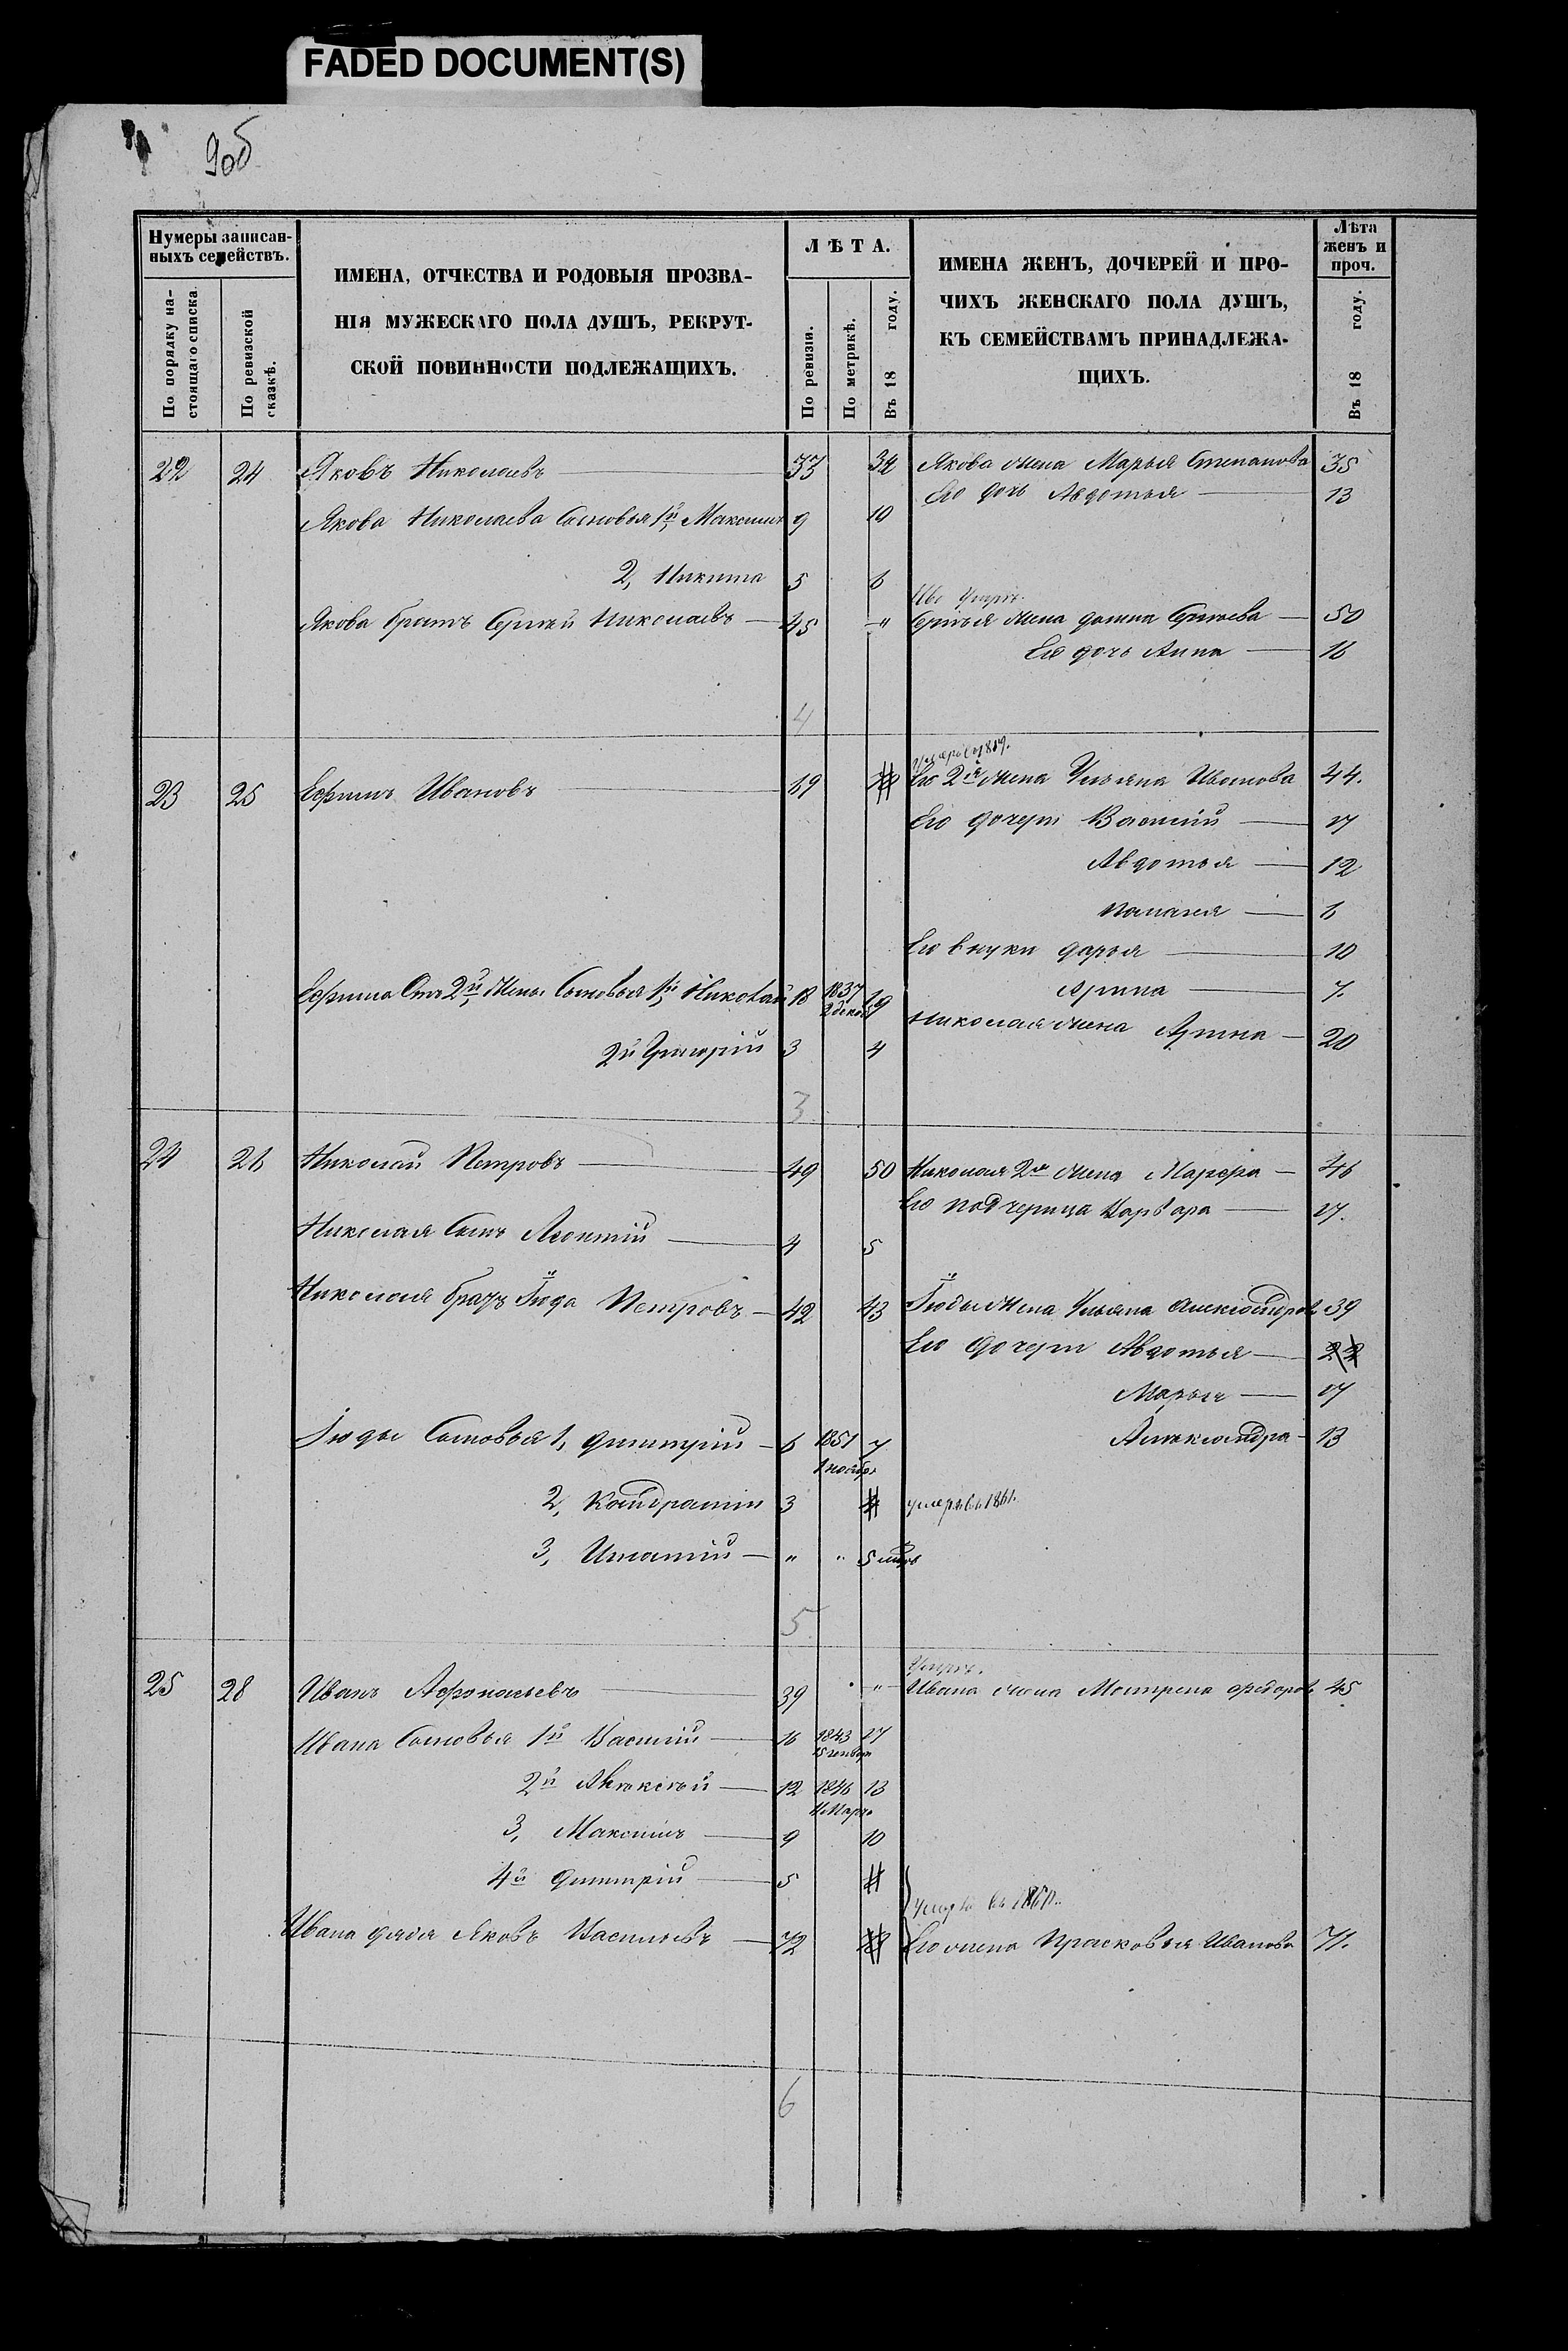 FADED DOCUMENT(S)
9об
Нумеры записан-
ныхъ семействъ.
По порядку на-
стоящаго списка
По ревизской
сказкѣ.
ИМЕНА, ОТЧЕСТВА И РОДОВЫЯ ПРОЗВА-
НІЯ МУЖЕСКАГО ПОЛА ДУШЪ, РЕКРУТ-
СКОЙ ПОВИННОСТИ ПОДЛЕЖАЩИХЪ.
ЛѢТА.
По ревизіи.
По метрикѣ.
Въ 18 году.
ИМЕНА ЖЕНЪ, ДОЧЕРЕЙ И ПРО-
ЧИХЪ ЖЕНСКАГО ПОЛА ДУШЪ,
КЪ СЕМЕЙСТВАМЪ ПРИНАДЛЕЖА-
ЩИХЪ.
Лѣта
женъ и
проч.
Въ 18 году.
22 24 Яковъ Николаевъ 33 34 Якова жена Марья Степанова 35
Его дочь Авдотья 13
Якова Николаева Сыновья 1й Максимъ 9 10
2, Никита 5 6
Якова братъ Сергѣй Николаевъ 45 " Сергѣя жена 50
Его дочь Анна 16
4
23 25 Ефимъ Ивановъ 69 Его 2я жена Ульяна Иванова 44.
Его дочери 17
Авдотья 12
Палагея 6
Его внуки Дарья 10
Арина 7.
Ефима Отъ 2й жены Сыновья 1й Николай 18 1837 19
Николая жена Арина 20
2й Григорій 3 4
3
24 26 Николай Петровъ 49 50 Николая 2я жена Марфа 46
Его подчерица Варвара 17.
Николая Сынъ Леонтій 4 5
Николая братъ Іюда Петровъ 42 43 Іюды жена Ульяна Александров 39
Его дочери Авдотья 22
Марья 17
Александра 13
Іюды Сыновья 1, Дмитрій 6 1851 7
1 ноябр.
2, Кондратій 3 умеръ въ 1861.
3, Игнатій " " 5 мѣс
5
25 28 Иванъ Афонасьевъ 39 " Умеръ.
Ивана жена Матрена Федоров 45
Ивана Сыновья 1й Василій 16 1843 17
2й Алексѣй 12 1846 13
Марта
3, Максимъ 9 10
4й Дмитрій 5
Ивана дядя Яковъ Васильевъ 72 Его жена Прасковья Иванова 71.
6